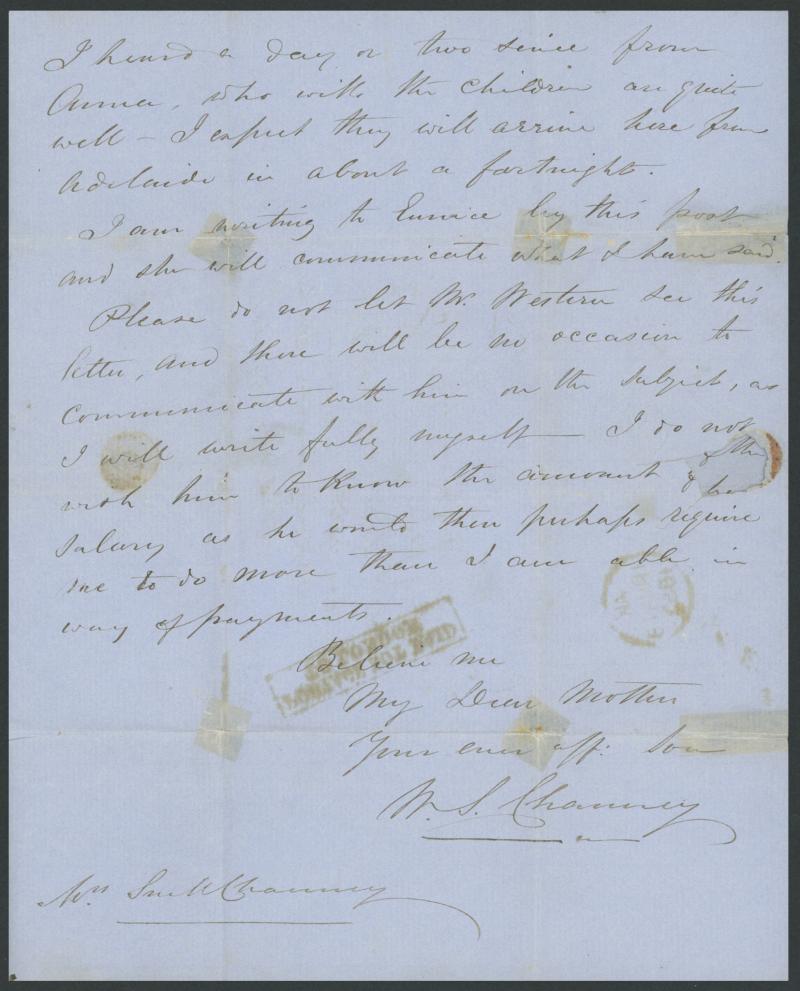 I heard a day or two since from
Anna, who with the children are quite
well – I expect they will arrive here from
Adelaide in about a fortnight.
I am writing to Eunice by this post
and she will communicate what I have said.
Please do not let Mr. Western see this
letter, and there will be no occasion to
communicate with him on the subject, as
I will write fully myself — I do not
wish him to know the amount of the
salary as he would then perhaps require
me to do more than I am able in
way of payments.
Believe me
My Dear Mother
Your ever aff: Son
W. S. Chauncy
Mrs Snell Chauncy